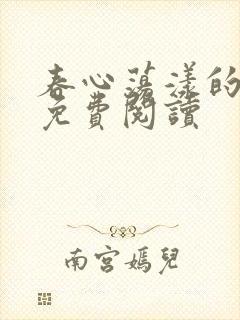 春心蕩漾的
免費閱讀
南宮嫣兒